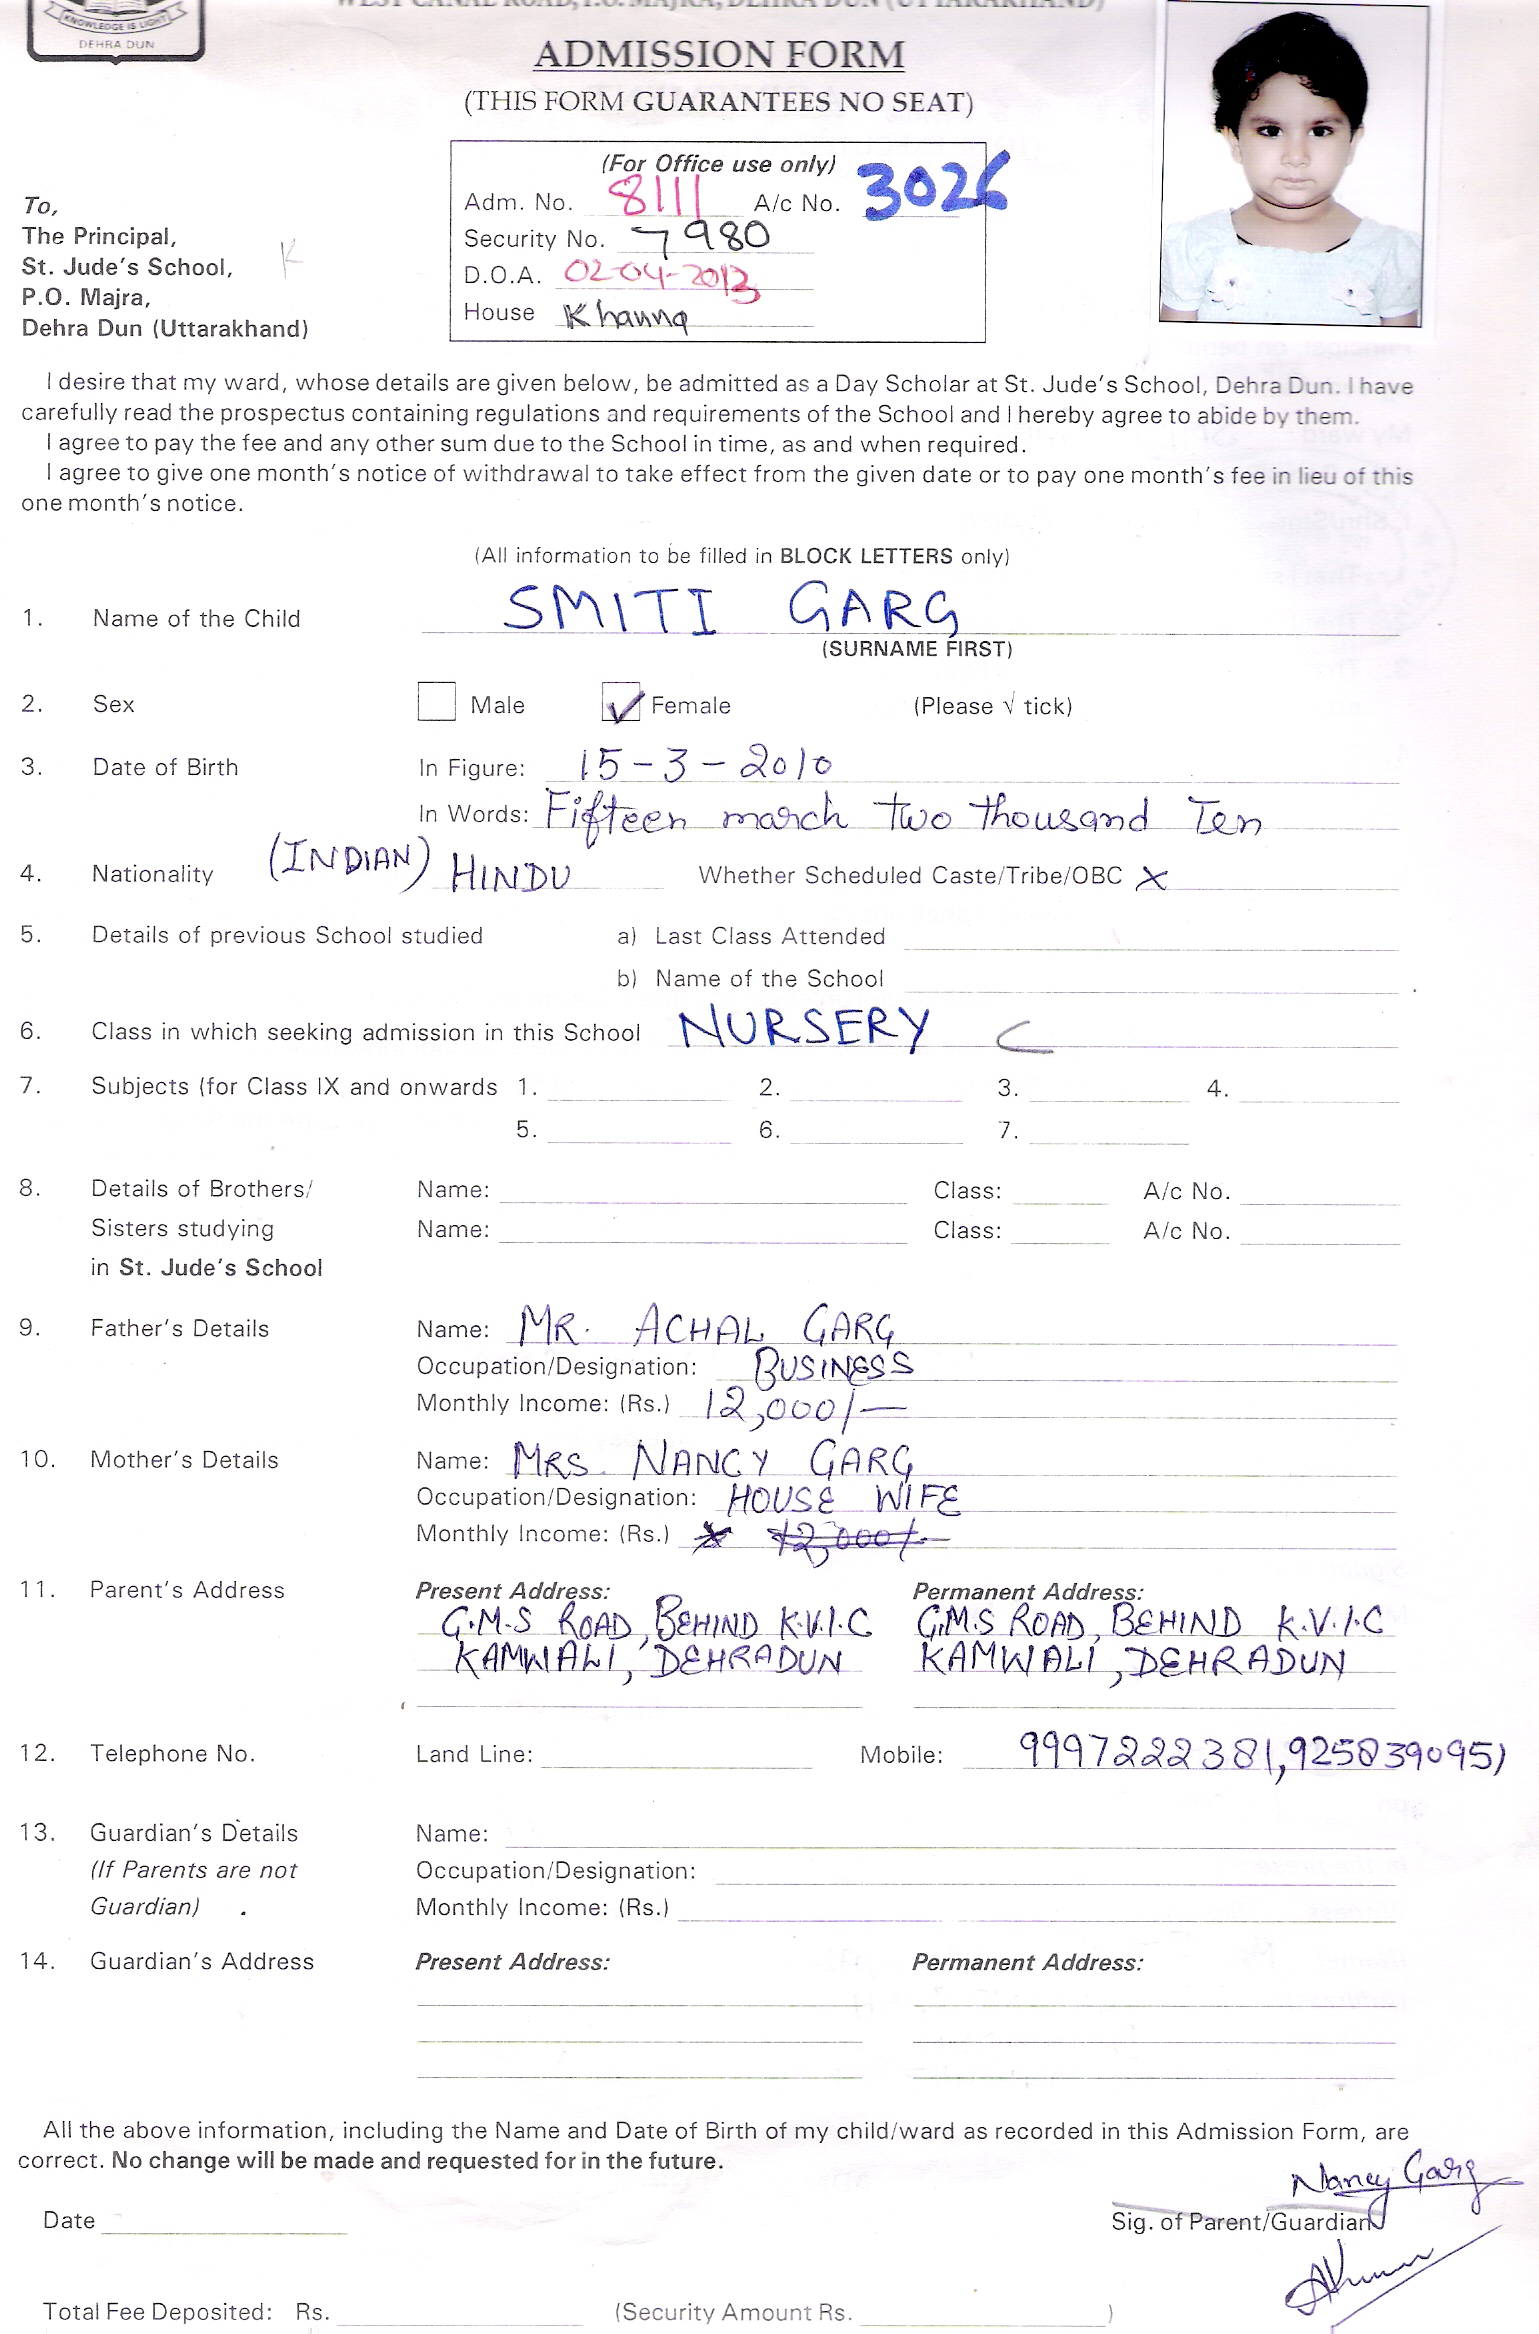 KNOWLEDGE IS LIGHT
DEHRA DUN
WEST CANAL ROAD, P.O. MAJRA, DEHRA DUN (UTTARAKHAND)
ADMISSION FORM
(THIS FORM GUARANTEES NO SEAT)
(For Office use only)
Adm. No. 8111 A/c No. 3026
Security No. 7980
D.O.A. 02-04-2013
House Khanna
To,
The Principal,
St. Jude's School, K
P.O. Majra,
Dehra Dun (Uttarakhand)
I desire that my ward, whose details are given below, be admitted as a Day Scholar at St. Jude's School, Dehra Dun. I have
carefully read the prospectus containing regulations and requirements of the School and I hereby agree to abide by them.
I agree to pay the fee and any other sum due to the School in time, as and when required.
I agree to give one month's notice of withdrawal to take effect from the given date or to pay one month's fee in lieu of this
one month's notice.
(All information to be filled in BLOCK LETTERS only)
1. Name of the Child SMITI GARG
(SURNAME FIRST)
2. Sex Male ✓ Female (Please √ tick)
3. Date of Birth In Figure: 15-3-2010
In Words: Fifteen march two thousand Ten
4. Nationality (INDIAN) HINDU Whether Scheduled Caste/Tribe/OBC X
5. Details of previous School studied a) Last Class Attended
b) Name of the School
6. Class in which seeking admission in this School NURSERY C
7. Subjects (for Class IX and onwards 1. 2. 3. 4.
5. 6. 7.
8. Details of Brothers/ Name: Class: A/c No.
Sisters studying Name: Class: A/c No.
in St. Jude's School
9. Father's Details Name: MR. ACHAL GARG
Occupation/Designation: BUSINESS
Monthly Income: (Rs.) 12,000/-
10. Mother's Details Name: MRS. NANCY GARG
Occupation/Designation: HOUSE WIFE
Monthly Income: (Rs.) x 12,000/-
11. Parent's Address Present Address: Permanent Address:
G.M.S ROAD, BEHIND K.V.I.C G.M.S ROAD, BEHIND K.V.I.C
KAMWALI, DEHRADUN KAMWALI, DEHRADUN
12. Telephone No. Land Line: Mobile: 9997222381, 9258390951
13. Guardian's Details Name:
(If Parents are not Occupation/Designation:
Guardian) Monthly Income: (Rs.)
14. Guardian's Address Present Address: Permanent Address:
All the above information, including the Name and Date of Birth of my child/ward as recorded in this Admission Form, are
correct. No change will be made and requested for in the future.
Nancy Garg
Date Sig. of Parent/Guardian
Total Fee Deposited: Rs. (Security Amount Rs. )